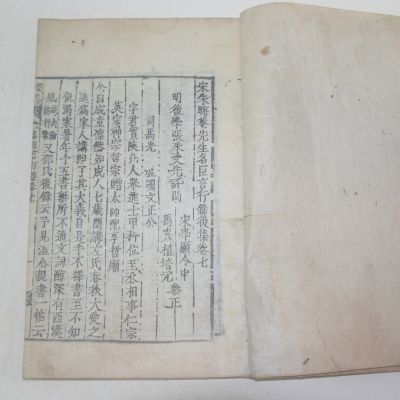 宋朱晦菴先生名臣言行錄後集卷七
明後學張采受先評閱
宋學顯令申
馬嘉植培元參正
司馬光 溫國文正公
字君實陜州人舉進士甲科位至丞相事仁宗
英宗神宗哲宗贈太師配享哲廟
公自成童凜然如成人七歲聞講左氏春秋大愛之
退爲家人講即了其大義自是手不釋書至不知
飢渴寒暑年十五書無所不通文詞醇深有西漢
風 又邵氏後錄云予見溫公親書一帖云